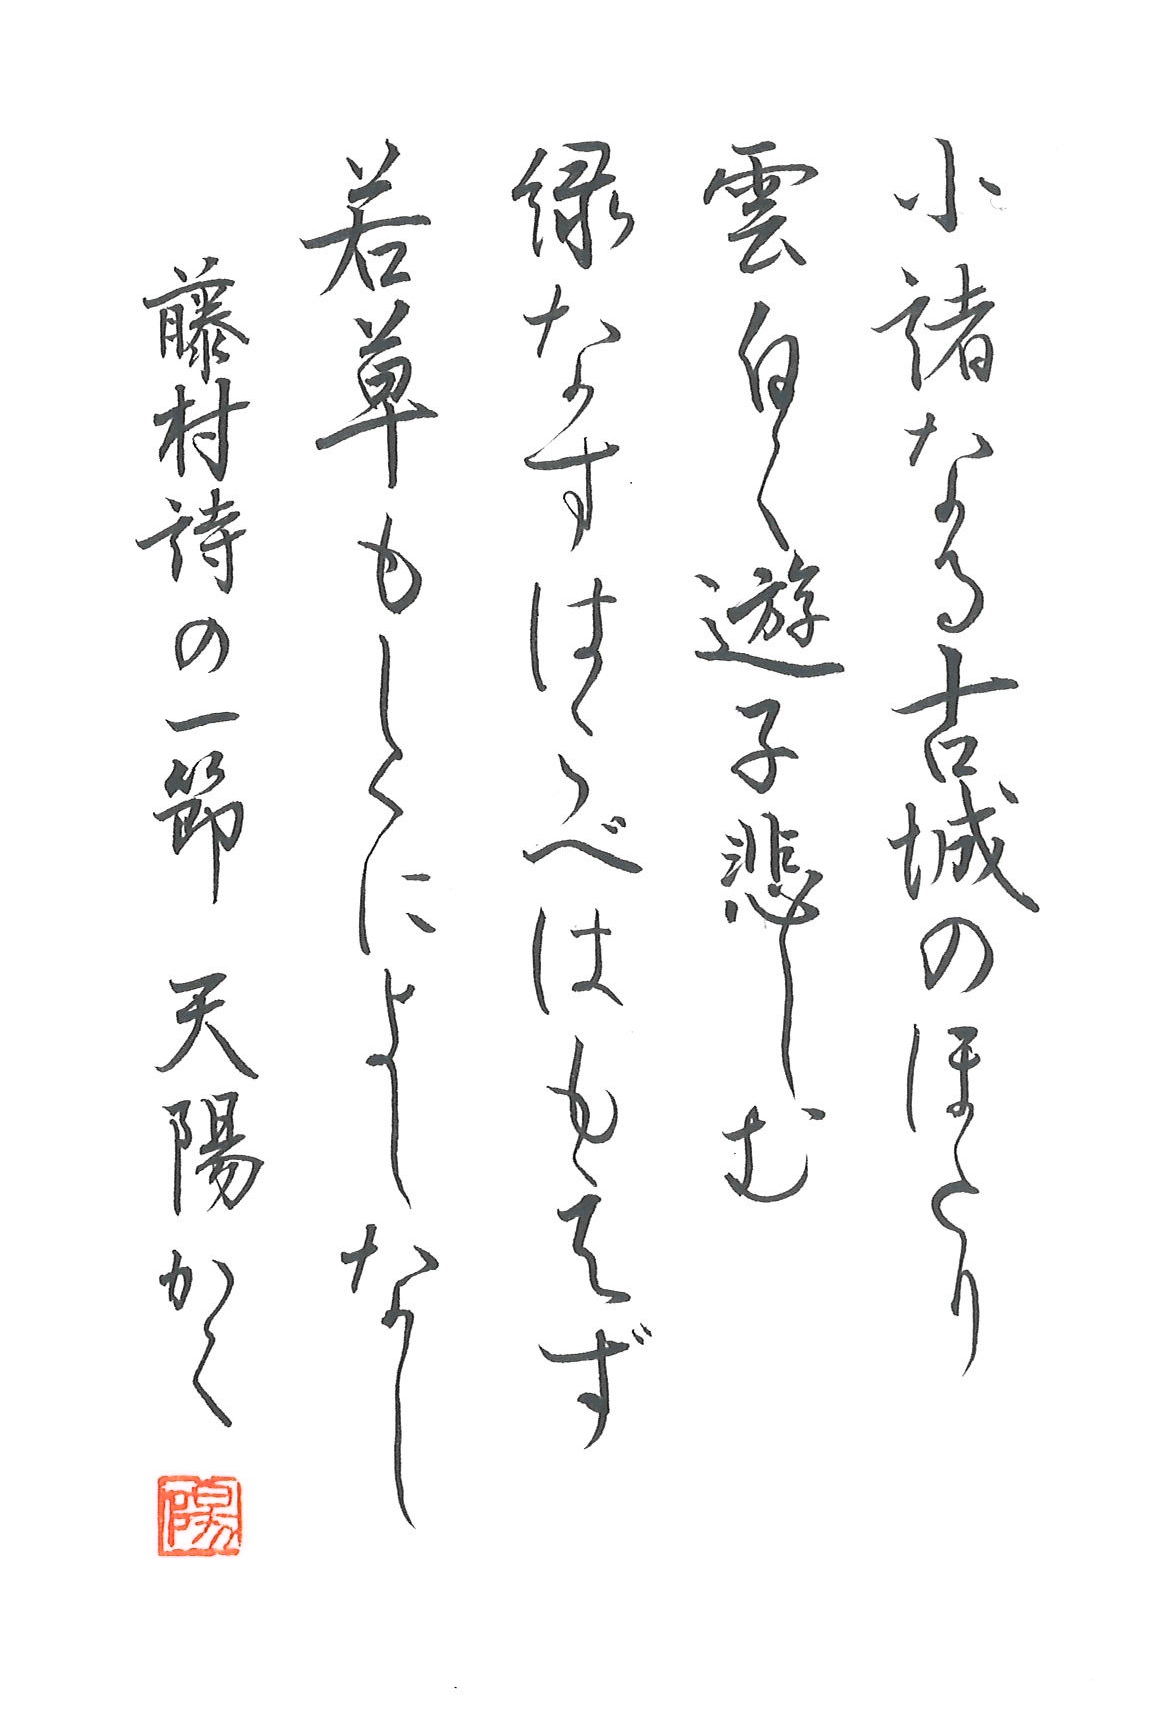 小諸なる古城のほとり
雲白く遊子悲しむ
緑なすはこべはもえず
若草もしくによしなし
藤村詩の一節 天陽かく
陽